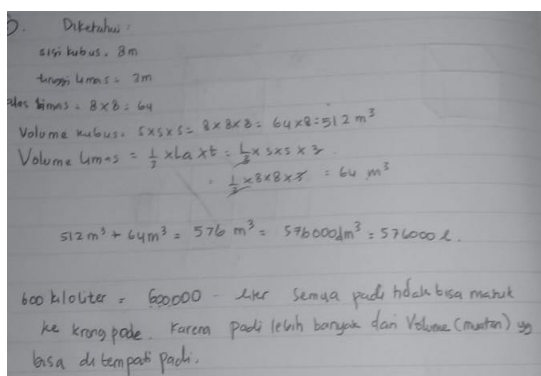 Diketahui:
sisi kubus = 8m
tinggi limas = 3m
alas limas = 8 x 8 = 64
Volume kubus = s x s x s = 8 x 8 x 8 = 64 x 8 = 512 m³
Volume limas = 1/3 x La x t = 1/3 x s x s x 3
= 1/3 x 8 x 8 x 3 = 64 m³
512 m³ + 64 m³ = 576 m³ = 576000 dm³ = 576000 l.
600 kiloliter = 600000 liter semua padi tidak bisa masuk
ke krong pade. Karena padi lebih banyak dari Volume (muatan) yg
bisa di tempati padi.